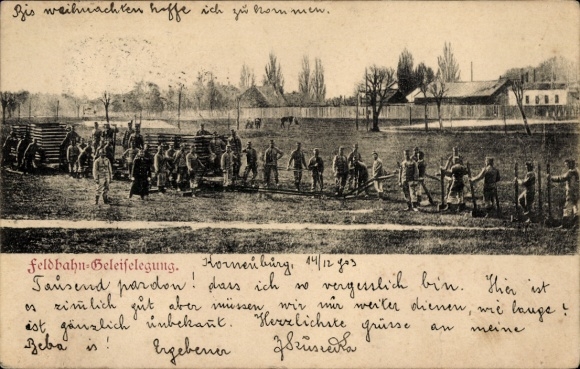 Bis weihnachten hoffe ich zu kommen.
Feldbahn-Geleiselegung.
Korneuburg, 14/12 903
Tausend pardon! dass ich so vergesslich bin. Hier ist
es zimlich gut aber müssen wir nur weiter dienen, wie lange?
ist gänzlich unbekant. Herzlichste grüsse an meine
Beba is! Ergebener